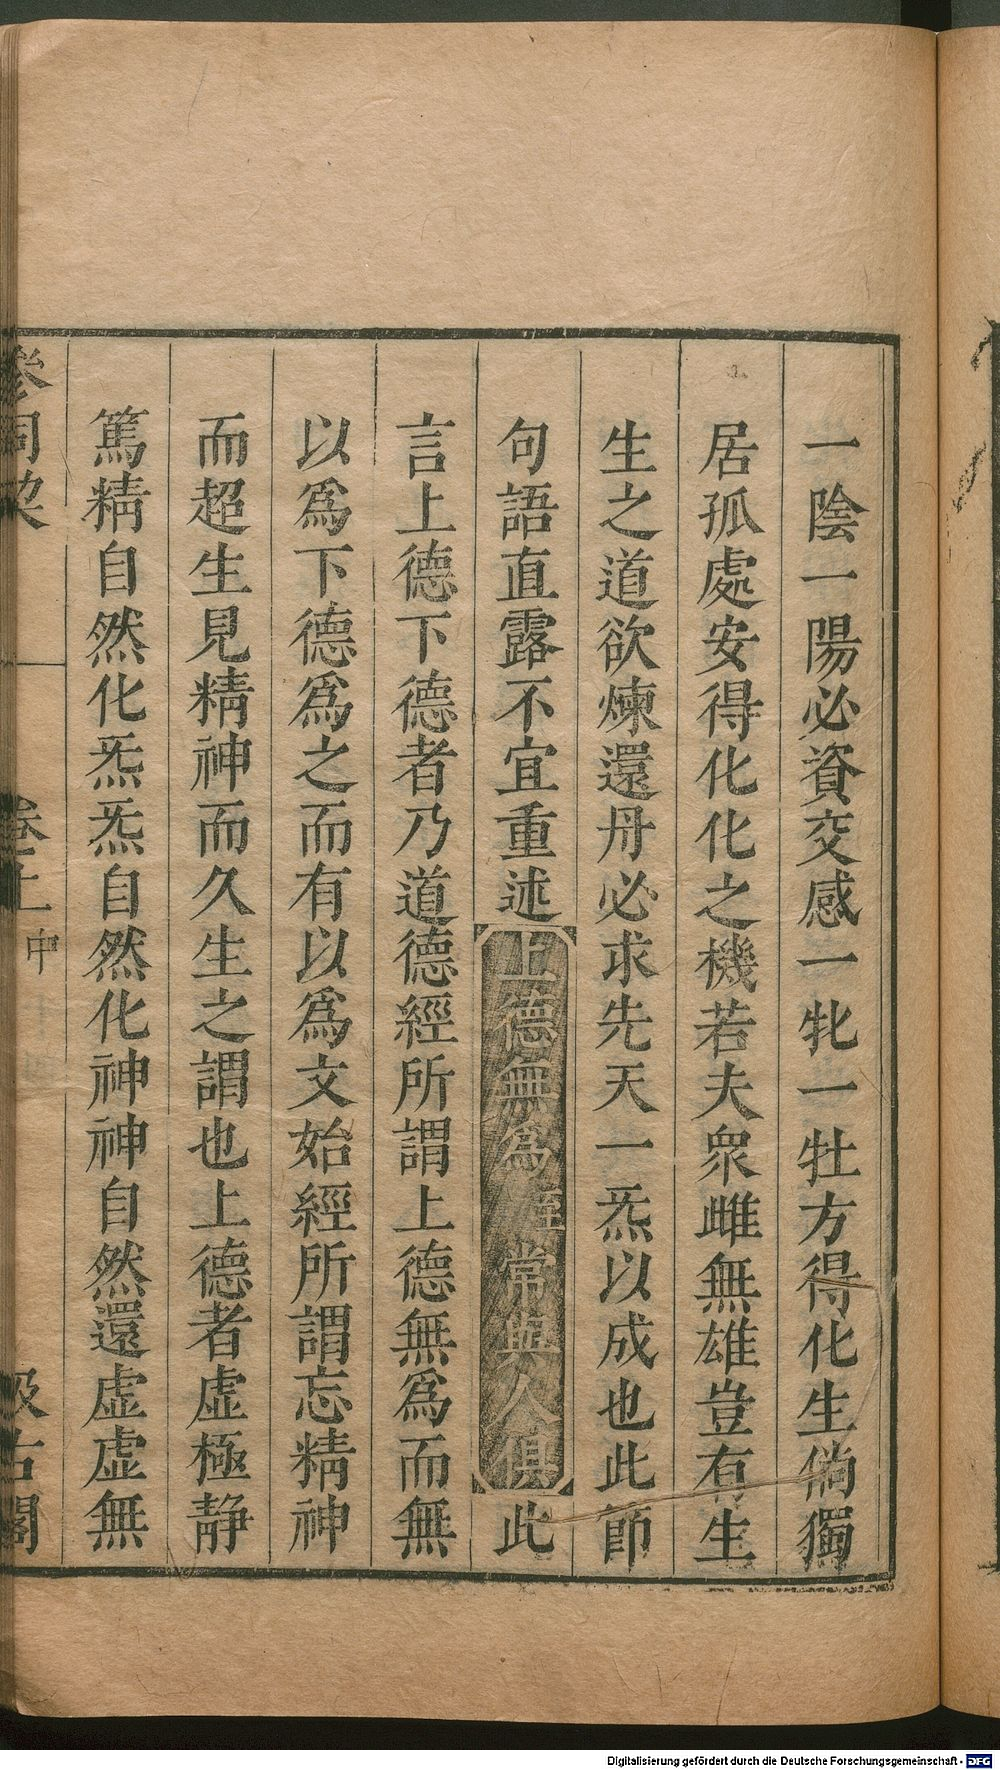 一陰一陽必資交感一牝一牡方得化生倘獨
居孤處安得化化之機若夫衆雌無雄豈有生
生之道欲煉還丹必求先天一炁以成也此節
句語直露不宜重述上德無爲至常與人俱此
言上德下德者乃道德經所謂上德無爲而無
以爲下德爲之而有以爲文始經所謂忘精神
而超生見精神而久生之謂也上德者虛極靜
篤精自然化炁炁自然化神神自然還虛虛無
參同契
卷上
中
汲古閣
Digitalisierung gefördert durch die Deutsche Forschungsgemeinschaft - DFG